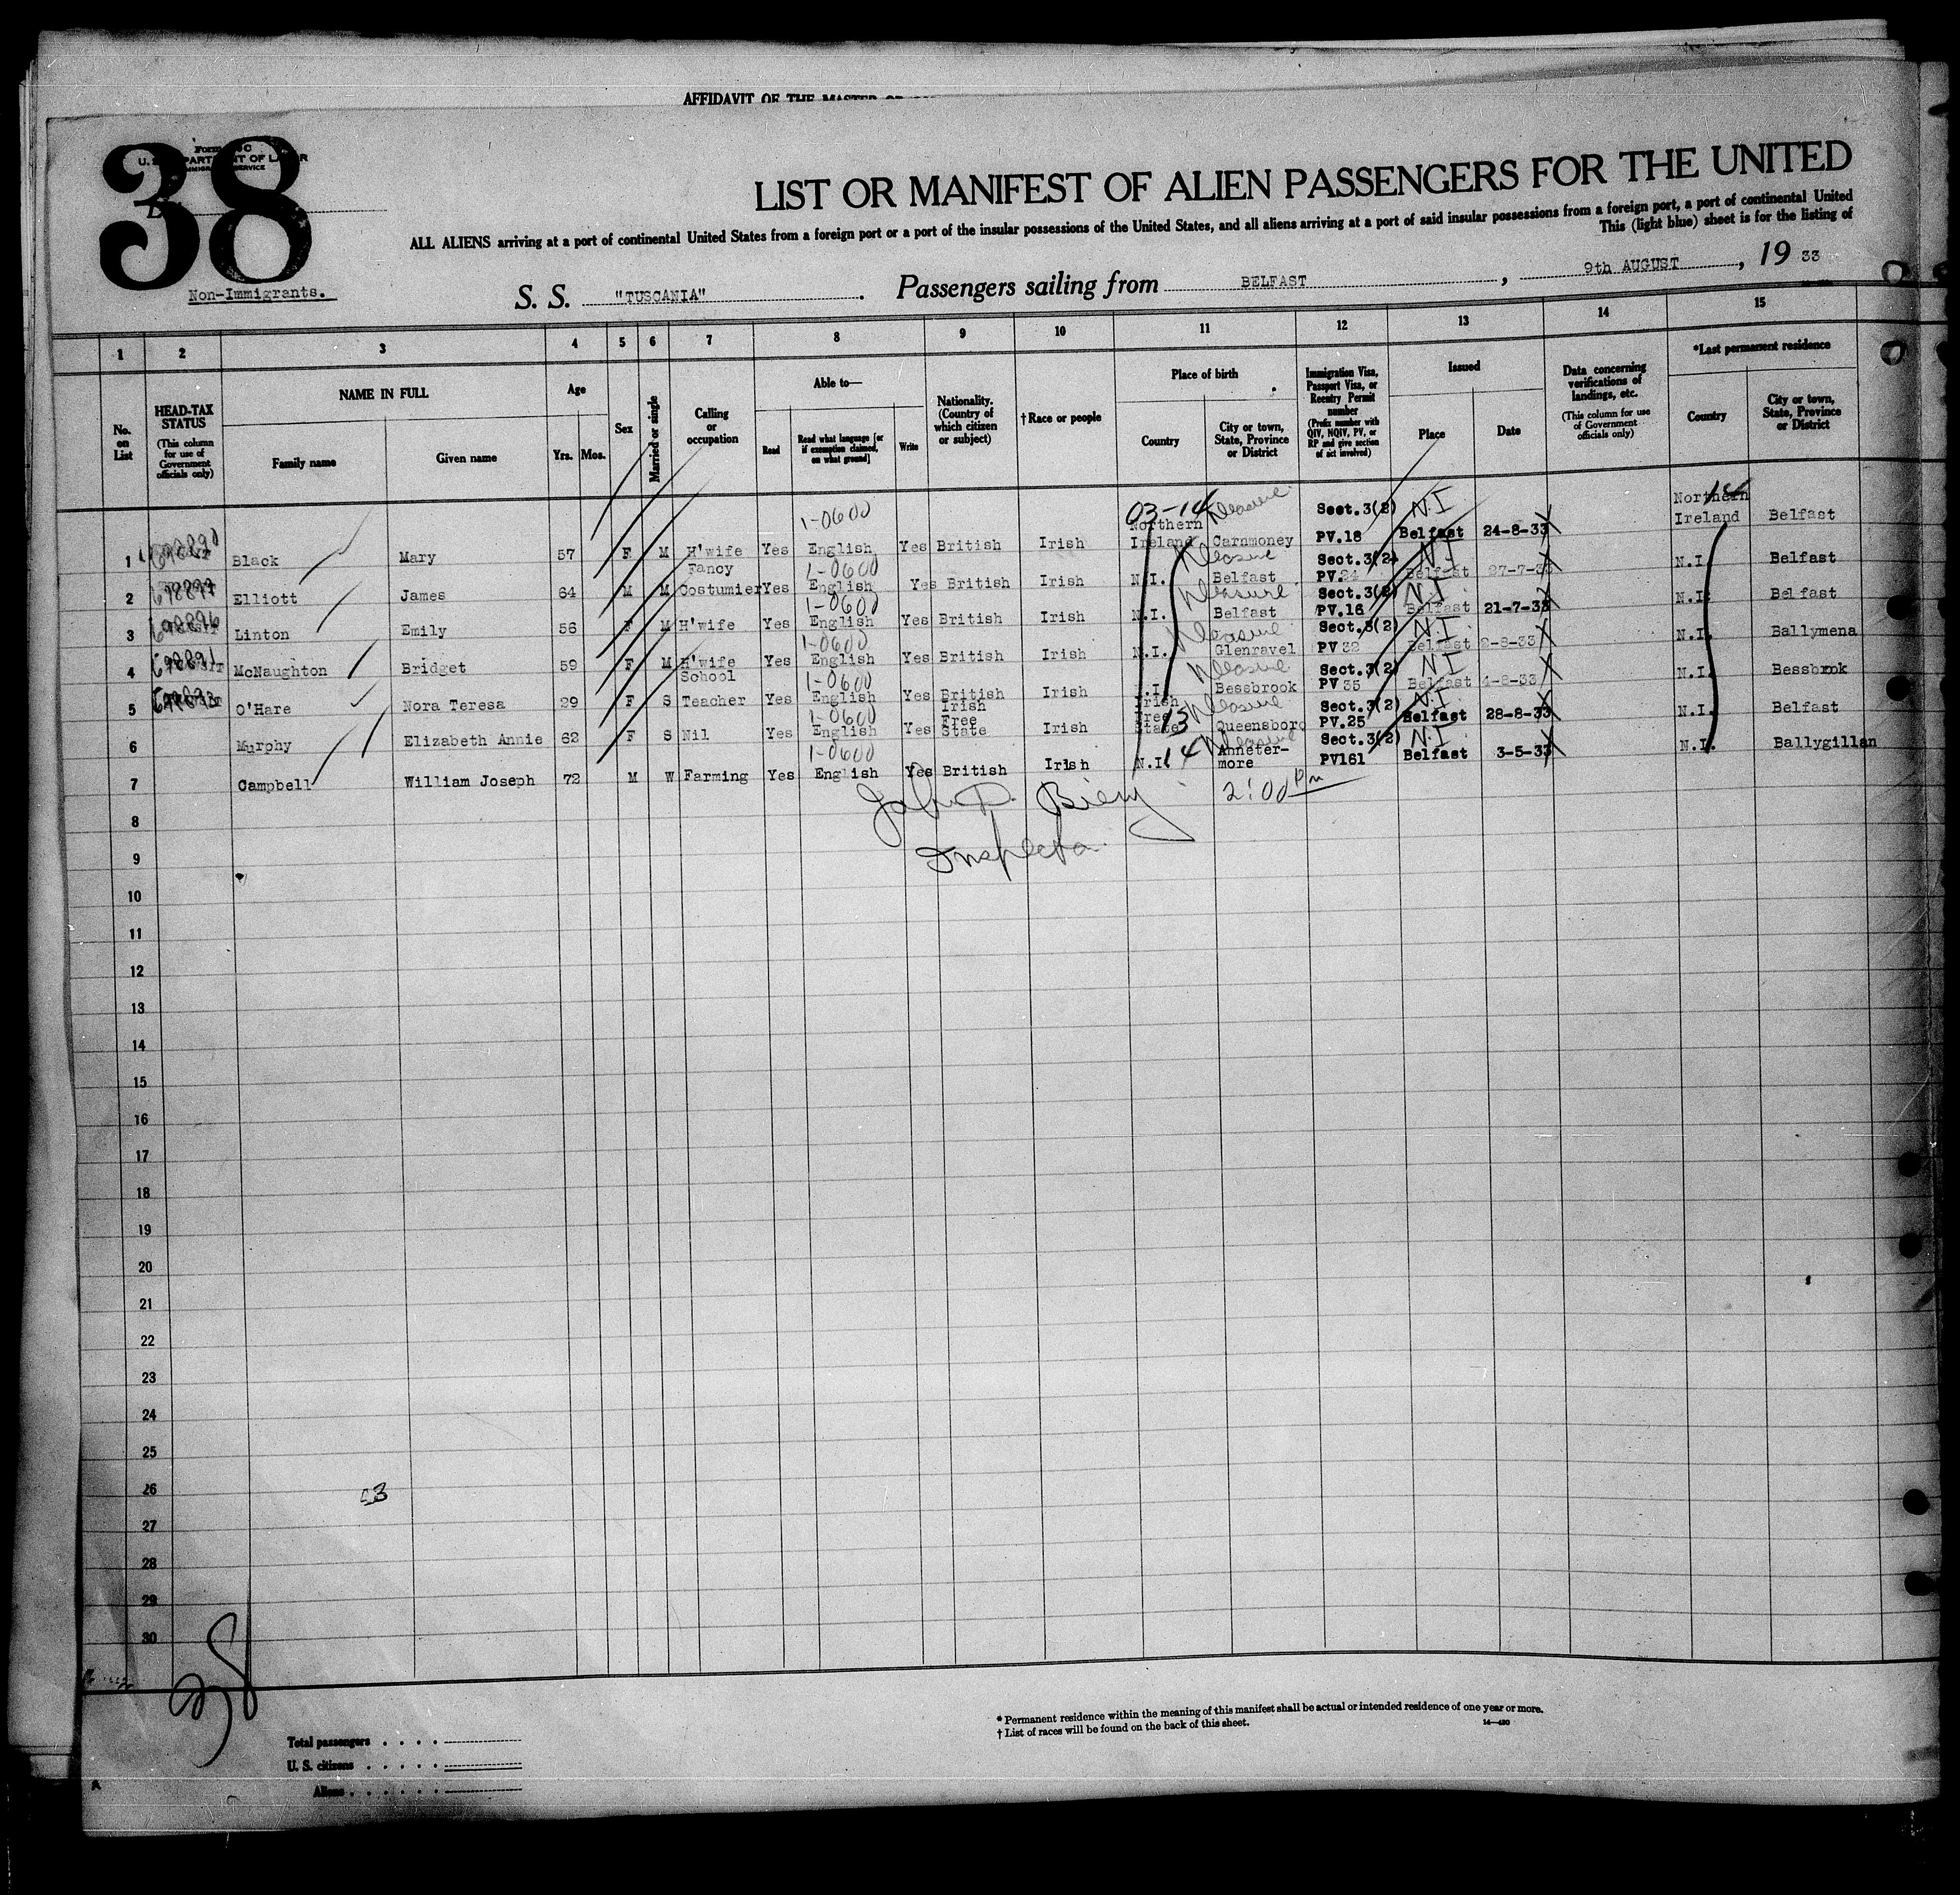 AFFIDAVIT OF THE MASTER OR
38
Form
U. S. DEPARTMENT OF LABOR
IMMIGRATION SERVICE
LIST OR MANIFEST OF ALIEN PASSENGERS FOR THE UNITED
ALL ALIENS arriving at a port of continental United States from a foreign port or a port of the insular possessions of the United States, and all aliens arriving at a port of said insular possessions from a foreign port, a port of continental United
This (light blue) sheet is for the listing of
Non-Immigrants.
S. S. "TUSCANIA" . Passengers sailing from BELFAST , 9th AUGUST , 19 33
1 2 3 4 5 6 7 8 9 10 11 12 13 14 15
No. on List
HEAD-TAX STATUS (This column for use of Government officials only)
NAME IN FULL
Family name Given name
Age
Yrs. Mos.
Sex
Married or single
Calling or occupation
Able to—
Read Read what language [or if exemption claimed, on what ground] Write
Nationality. (Country of which citizen or subject)
†Race or people
Place of birth
Country City or town, State, Province or District
Immigration Visa, Passport Visa, or Reentry Permit number (Prefix number with QIV, NQIV, PV, or RP and give section of act involved)
Issued
Place Date
Data concerning verifications of landings, etc. (This column for use of Government officials only)
*Last permanent residence
Country City or town, State, Province or District
1 Black Mary 57 F M H'wife Yes 1-0600 English Yes British Irish 03-14 Northern Ireland Pleasure Carnmoney Sect.3(2) PV.18 N.I Belfast 24-8-33 14 Northern Ireland Belfast
2 Elliott James 64 M M Fancy Costumier Yes 1-0600 English Yes British Irish N.I. Pleasure Belfast Sect.3(2) PV.24 N.I Belfast 27-7-33 N.I. Belfast
3 Linton Emily 56 F M H'wife Yes 1-0600 English Yes British Irish N.I. Pleasure Belfast Sect.3(2) PV.16 N.I Belfast 21-7-33 N.I. Belfast
4 McNaughton Bridget 59 F M H'wife Yes 1-0600 English Yes British Irish N.I. Pleasure Glenravel Sect.3(2) PV 32 N.I Belfast 2-8-33 N.I. Ballymena
5 O'Hare Nora Teresa 29 F S School Teacher Yes 1-0600 English Yes British Irish N.I. Pleasure Bessbrook Sect.3(2) PV 35 N.I Belfast 4-8-33 N.I. Bessbrook
6 Murphy Elizabeth Annie 62 F S Nil Yes 1-0600 English Yes Irish Free State Irish Irish Free State 13 Pleasure Queensboro Sect.3(2) PV.25 N.I Belfast 28-8-33 N.I. Belfast
7 Campbell William Joseph 72 M W Farming Yes 1-0600 English Yes British Irish N.I. 14 Pleasure Annetermore Sect.3(2) PV161 N.I Belfast 3-5-33 N.I. Ballygillan
John D. 2:00 pm
Inspector
8
9
10
11
12
13
14
15
16
17
18
19
20
21
22
23
24
25
26
27
28
29
30
38
* Permanent residence within the meaning of this manifest shall be actual or intended residence of one year or more.
† List of races will be found on the back of this sheet.
Total passengers
U. S. citizens
Aliens